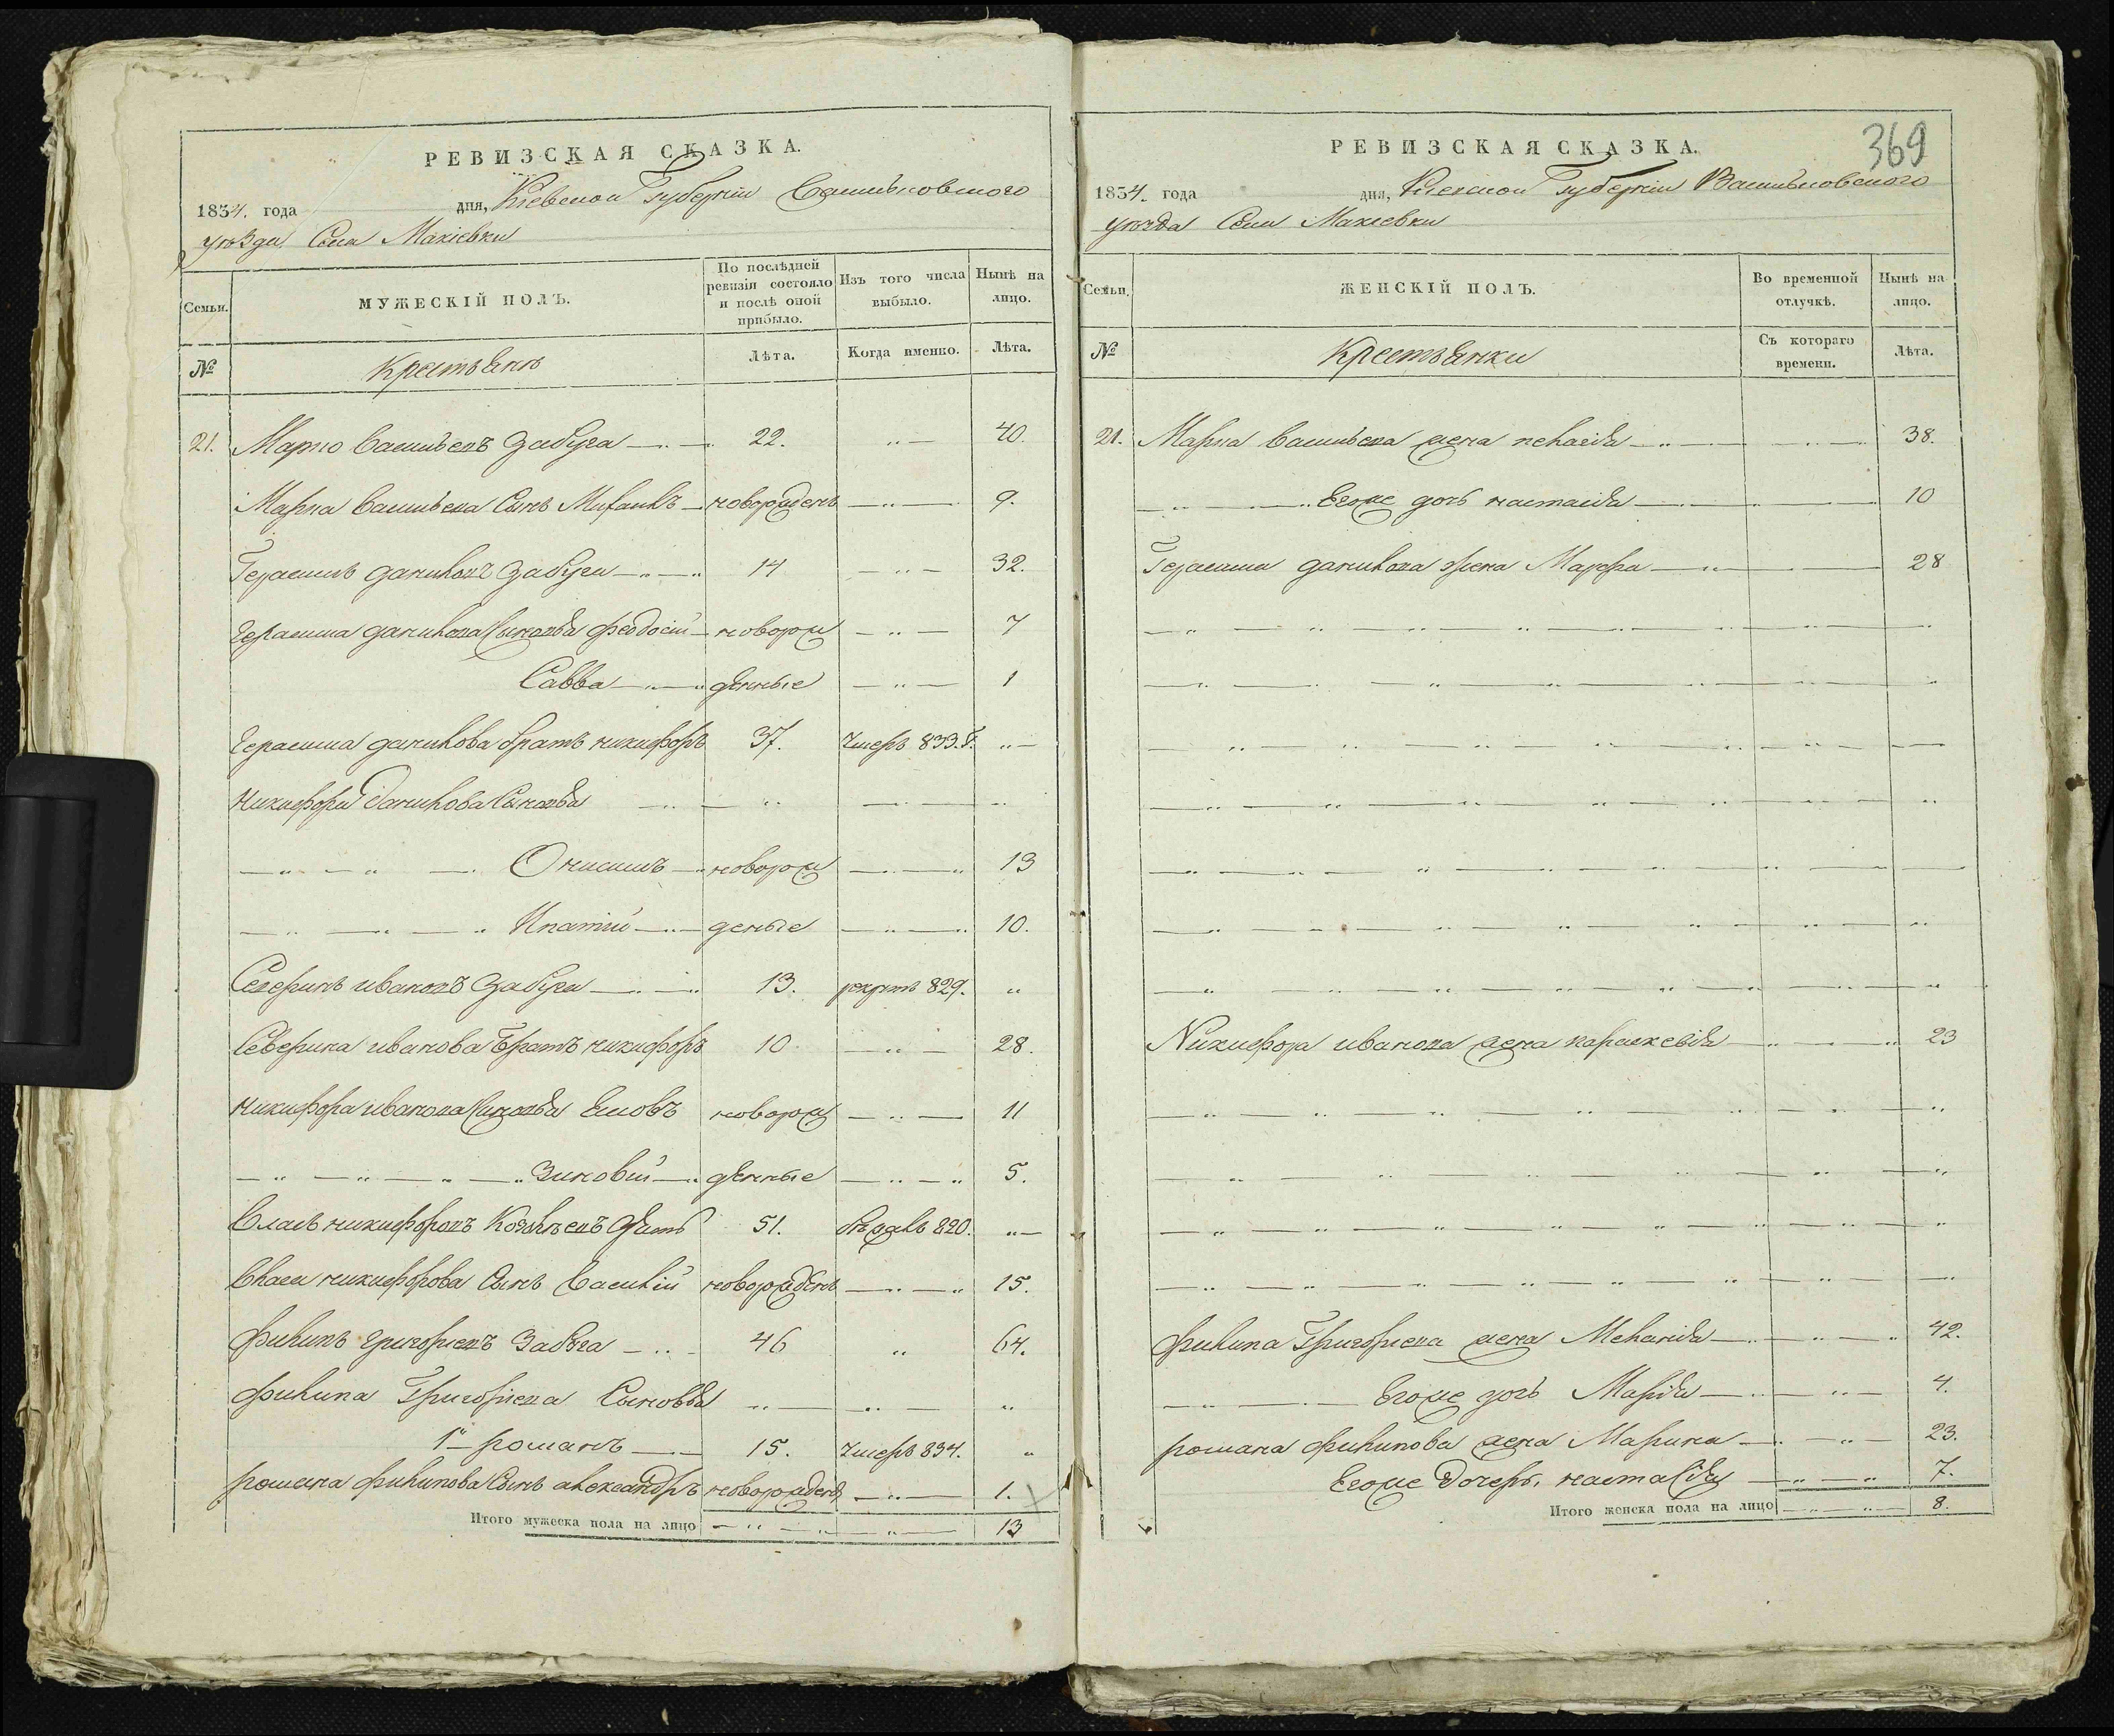 РЕВИЗСКАЯ СКАЗКА.
1834. года дня, Кіевской Губерніи Васильковского
уѣзда Села Макіевки
Семьи.
МУЖЕСКІЙ ПОЛЪ.
По послѣдней ревизіи состояло и послѣ оной прибыло.
Изъ того числа выбыло.
Нынѣ на лицо.
№
Крестьянъ
Лѣта.
Когда именно.
Лѣта.
21. Марко Васильевъ Забуга 22. 40.
Марка Васильева Сынъ Михаилъ новорожденъ 9.
Герасимъ даниловъ Забуга 14 32.
Герасима данилова Сыновья феодосій новорож 7
Савва денные 1
Герасима данилова братъ никифоръ 37. Умеръ 833. г.
никифора данилова Сыновья
Онисимъ новорож 13
Ипатій деные 10.
Северинъ ивановъ Забуга 13. рекрутъ 829.
Северина иванова братъ никифоръ 10 28.
никифора иванова Сыновья новорож 11
Зиновій денные 5.
Власъ никифоровъ зять 51. бѣжалъ 820.
Власа никифорова Сынъ Василій новорожденъ 15.
филипъ григорьевъ Забуга 46 64.
филипа Григорьева Сыновья
1й романъ 15. Умеръ 834.
романа филипова Сынъ александръ новорожденъ 1.
Итого мужеска пола на лицо 13
369
РЕВИЗСКАЯ СКАЗКА.
1834. года дня, Кіевской Губерніи Васильковского
уѣзда Села Макіевки
Семьи.
ЖЕНСКІЙ ПОЛЪ.
Во временной отлучкѣ.
Нынѣ на лицо.
№
Крестьянки
Съ котораго времени.
Лѣта.
21. Марка Васильева жена пелагія 38.
Егоже дочь настасія 10
Герасима данилова жена Марфа 28
Никифора иванова жена параскевія 23
филипа Григорьева жена Меланія 42.
Егоже дочь Марія 4.
романа филипова жена Марина 23.
Егоже дочерь, настасія 7.
Итого женска пола на лицо 8.